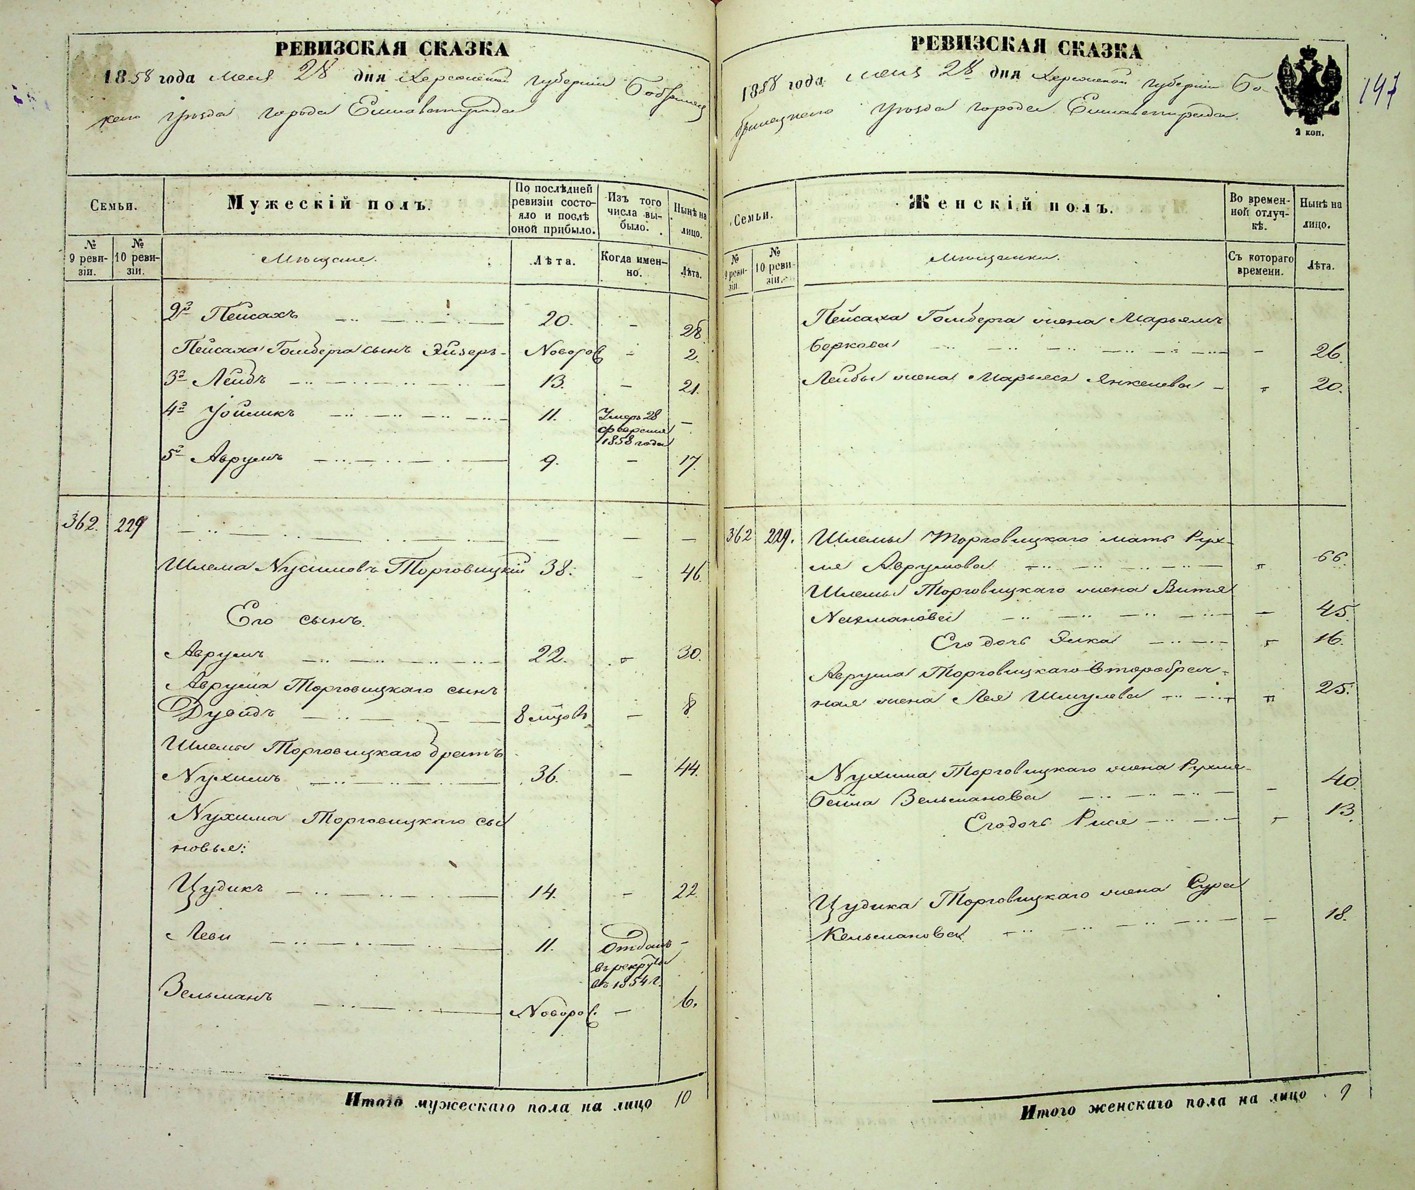 РЕВИЗСКАЯ СКАЗКА
1858 года мая 28 дня Херсонской губернии Бобринец
каго уѣзда города Елисаветграда
Семьи.
Мужескій полъ.
По послѣдней ревизіи состояло и послѣ оной прибыло.
Изъ того числа выбыло.
Нынѣ на лицо.
№ 9 ревизіи.
№ 10 ревизіи.
Мѣщане.
Лѣта.
Когда именно.
Лѣта.
2й Пейсахъ 20. - 28.
Пейсаха Гомберга сынъ Эйзеръ Новорож - 2.
3й Лейбъ 13. - 21.
4й Уойликъ 11. Умеръ 28 февраля 1858 года -
5й Аврумъ 9. - 17.
362. 229 - - -
Шлема Нусимовъ Торговицкій 38. - 46.
Его сынъ.
Аврумъ 22. - 30.
Аврума Торговицкаго сынъ
Дувидъ 8 мѣсяв. - 8
Шлемы Торговицкаго братъ
Нухимъ 36. - 44.
Нухима Торговицкаго сы
новья:
Цудикъ 14. - 22.
Леви 11. Отданъ въ рекруты въ 1854 г. -
Вельманъ Новорож. - 6.
Итого мужескаго пола на лицо 10
РЕВИЗСКАЯ СКАЗКА
1858 года мая 28 дня Херсонской губернии Бо-
бринецкаго уѣзда города Елисаветграда.
2 коп.
147
Семьи.
Женскій полъ.
Во временной отлучкѣ.
Нынѣ на лицо.
№ 9 ревизіи.
№ 10 ревизіи.
Мѣщанки.
Съ котораго времени.
Лѣта.
Пейсаха Гомберга жена Марьямъ
Беркова - 26.
Лейбы жена Марьяся Янкелева - " 20.
362 229. Шлемы Торговицкаго мать Рух-
ля Аврумова " 66.
Шлемы Торговицкаго жена Витя
Нахманова - 45.
Его дочь Элка " 16.
Аврума Торговицкаго второбрач-
ная жена Лея Шмулева " 25.
Нухима Торговицкаго жена Рухля-
Бейла Вельманова - 40.
Его дочь Рися - 13.
Цудика Торговицкаго жена Сура
Кельманова - 18.
Итого женскаго пола на лицо 9